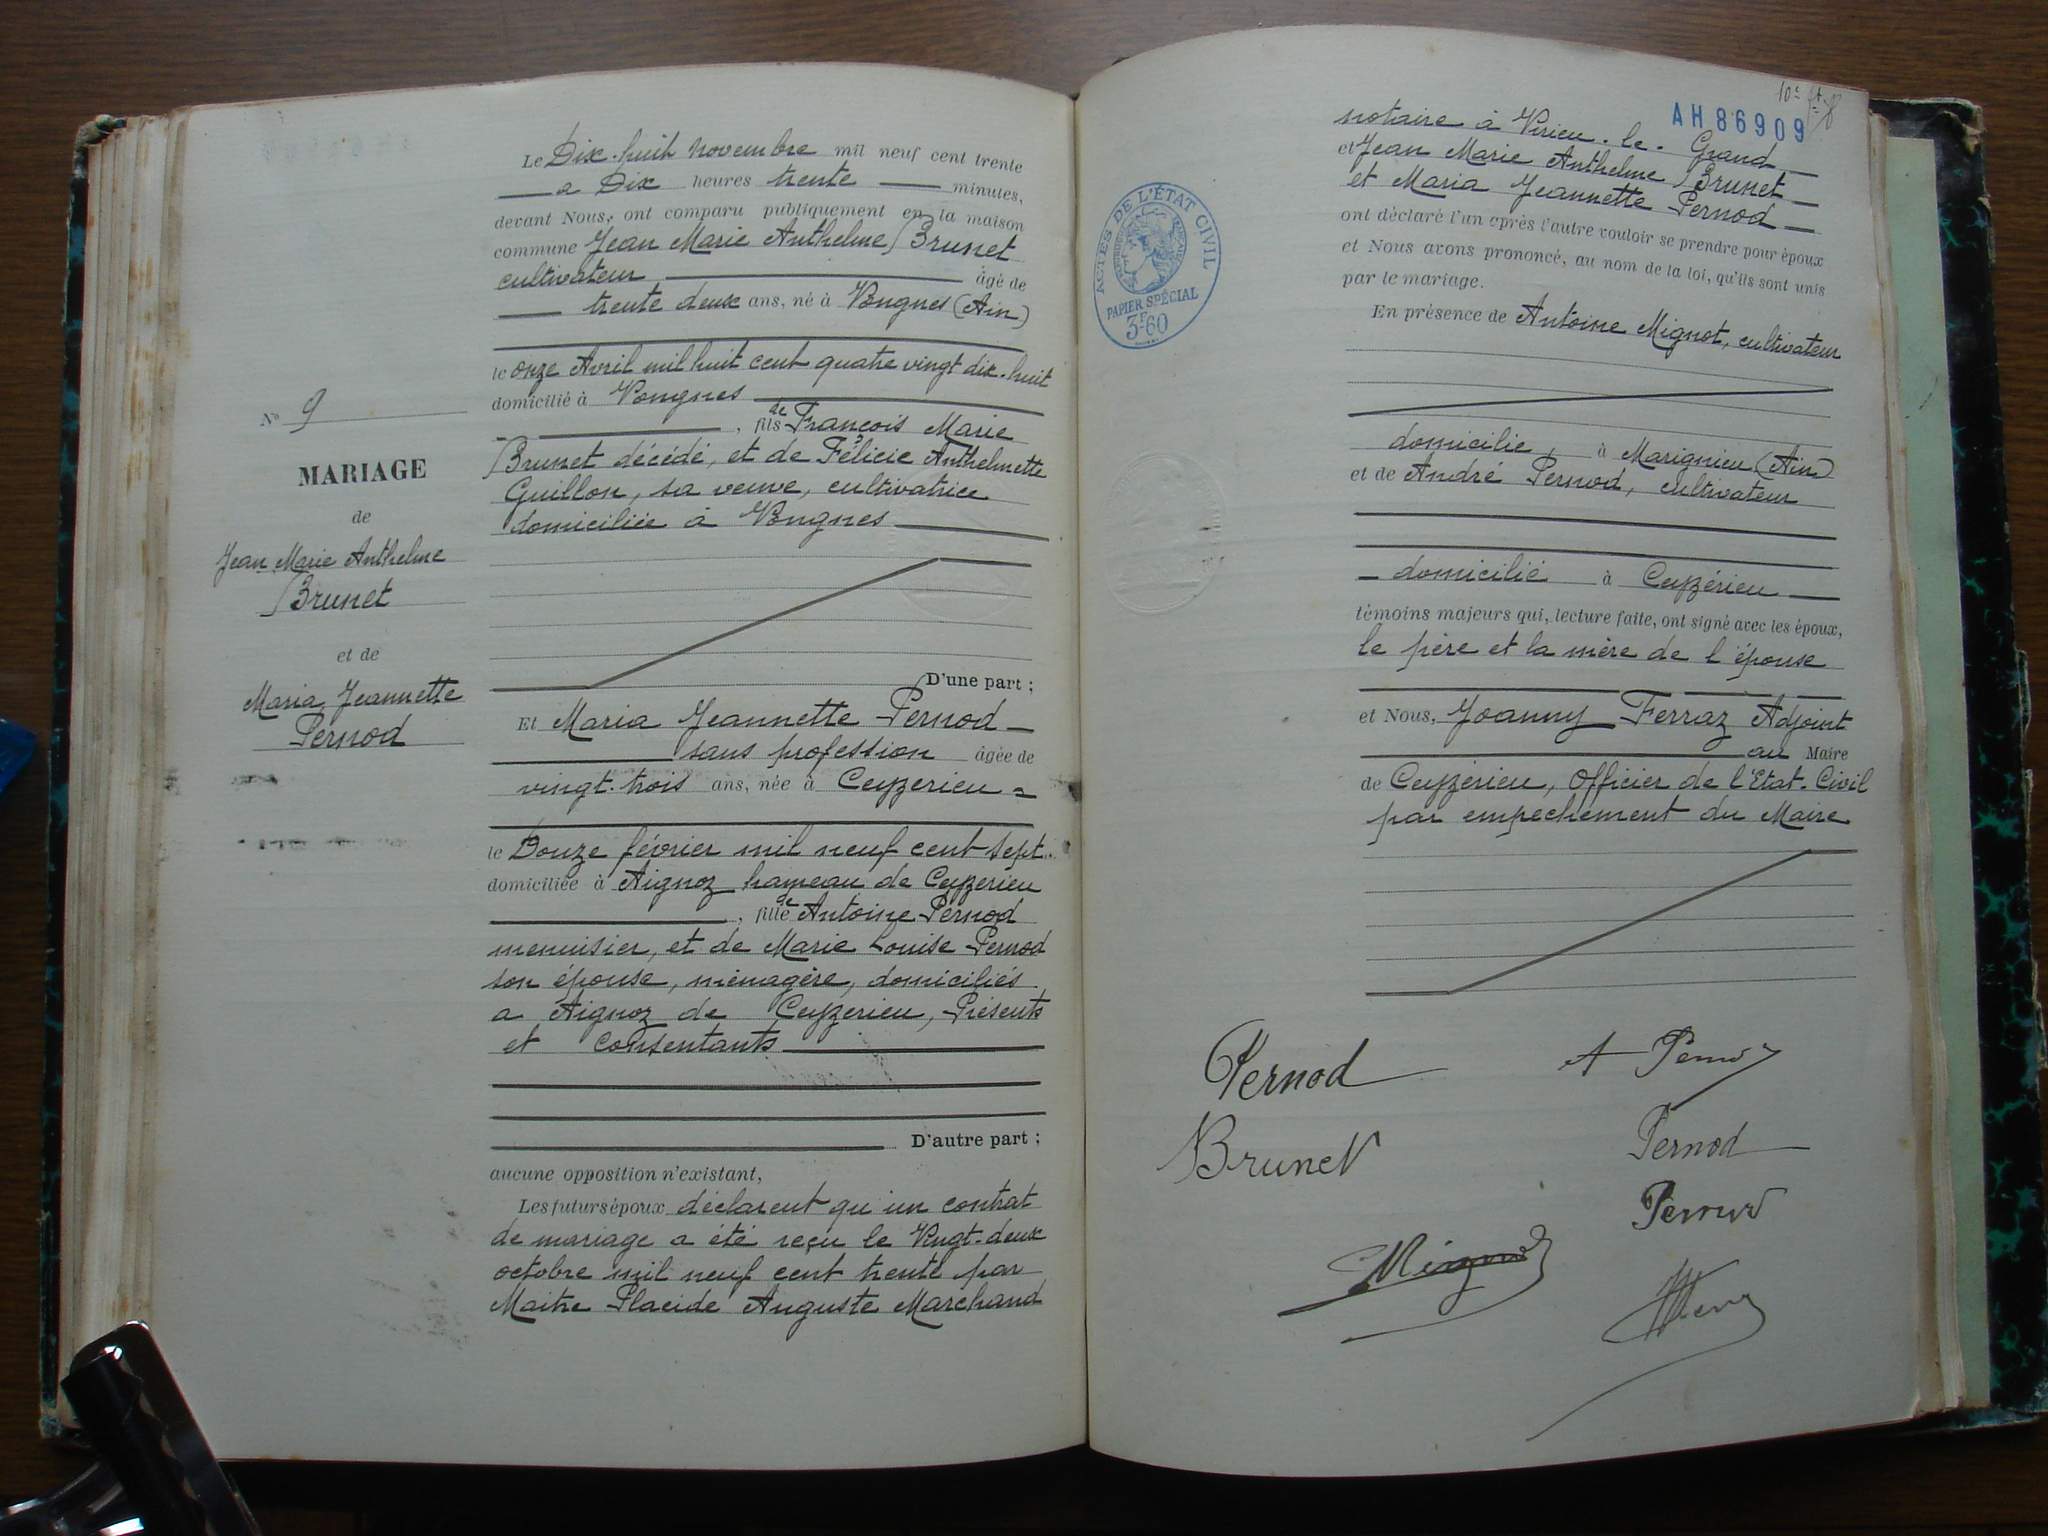 Nº 9
MARIAGE
de
Jean Marie Anthelme
Brunet
et de
Maria Jeannette
Pernod
Le Dix-huit novembre mil neuf cent trente
a Dix heures trente minutes,
devant Nous, ont comparu publiquement en la maison
commune Jean Marie Anthelme Brunet
cultivateur âgé de
trente deux ans, né à Vongnes (Ain)
le onze Avril mil huit cent quatre vingt dix-huit
domicilié à Vongnes
, fils de François Marie
Brunet décédé, et de Félicie Anthelmette
Guillon, sa veuve, cultivatrice
domiciliée à Vongnes
D'une part ;
Et Maria Jeannette Pernod
sans profession âgée de
vingt-trois ans, née à Ceyzerieu
le Douze février mil neuf cent sept
domiciliée à Aignoz hameau de Ceyzerieu
, fille de Antoine Pernod
menuisier, et de Marie Louise Pernod
son épouse, ménagère, domiciliés
a Aignoz de Ceyzerieu, Présents
et consentants
D'autre part ;
aucune opposition n'existant,
Les futurs époux déclarent qu'un contrat
de mariage a été reçu le Vingt-deux
octobre mil neuf cent trente par
Maitre Placide Auguste Marchand
10e
AH 86909
notaire à Virieu-le-Grand
et Jean Marie Anthelme Brunet
et Maria Jeannette Pernod
ont déclaré l'un après l'autre vouloir se prendre pour époux
et Nous avons prononcé, au nom de la loi, qu'ils sont unis
par le mariage.
ACTES DE L'ÉTAT CIVIL
PAPIER SPÉCIAL
3F60
En présence de Antoine Mignot, cultivateur
domicilié à Marignieu (Ain)
et de André Pernod, cultivateur
domicilié à Ceyzérieu
témoins majeurs qui, lecture faite, ont signé avec les époux,
le père et la mère de l'épouse
et Nous, Joanny Ferraz Adjoint
au Maire
de Ceyzérieu, Officier de l'Etat-Civil
par empechement du Maire
Pernod A Pernod
Brunet Pernod
Pernod
Mignot